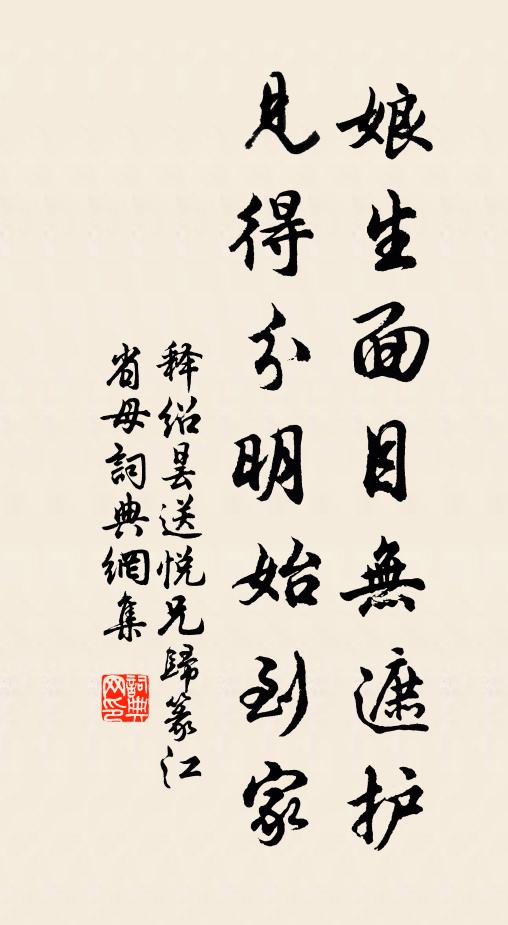 娘生面目無遮护
見得分明始到家
释绍昙送悦兄歸篆江
省母詞典網集
詞典网印